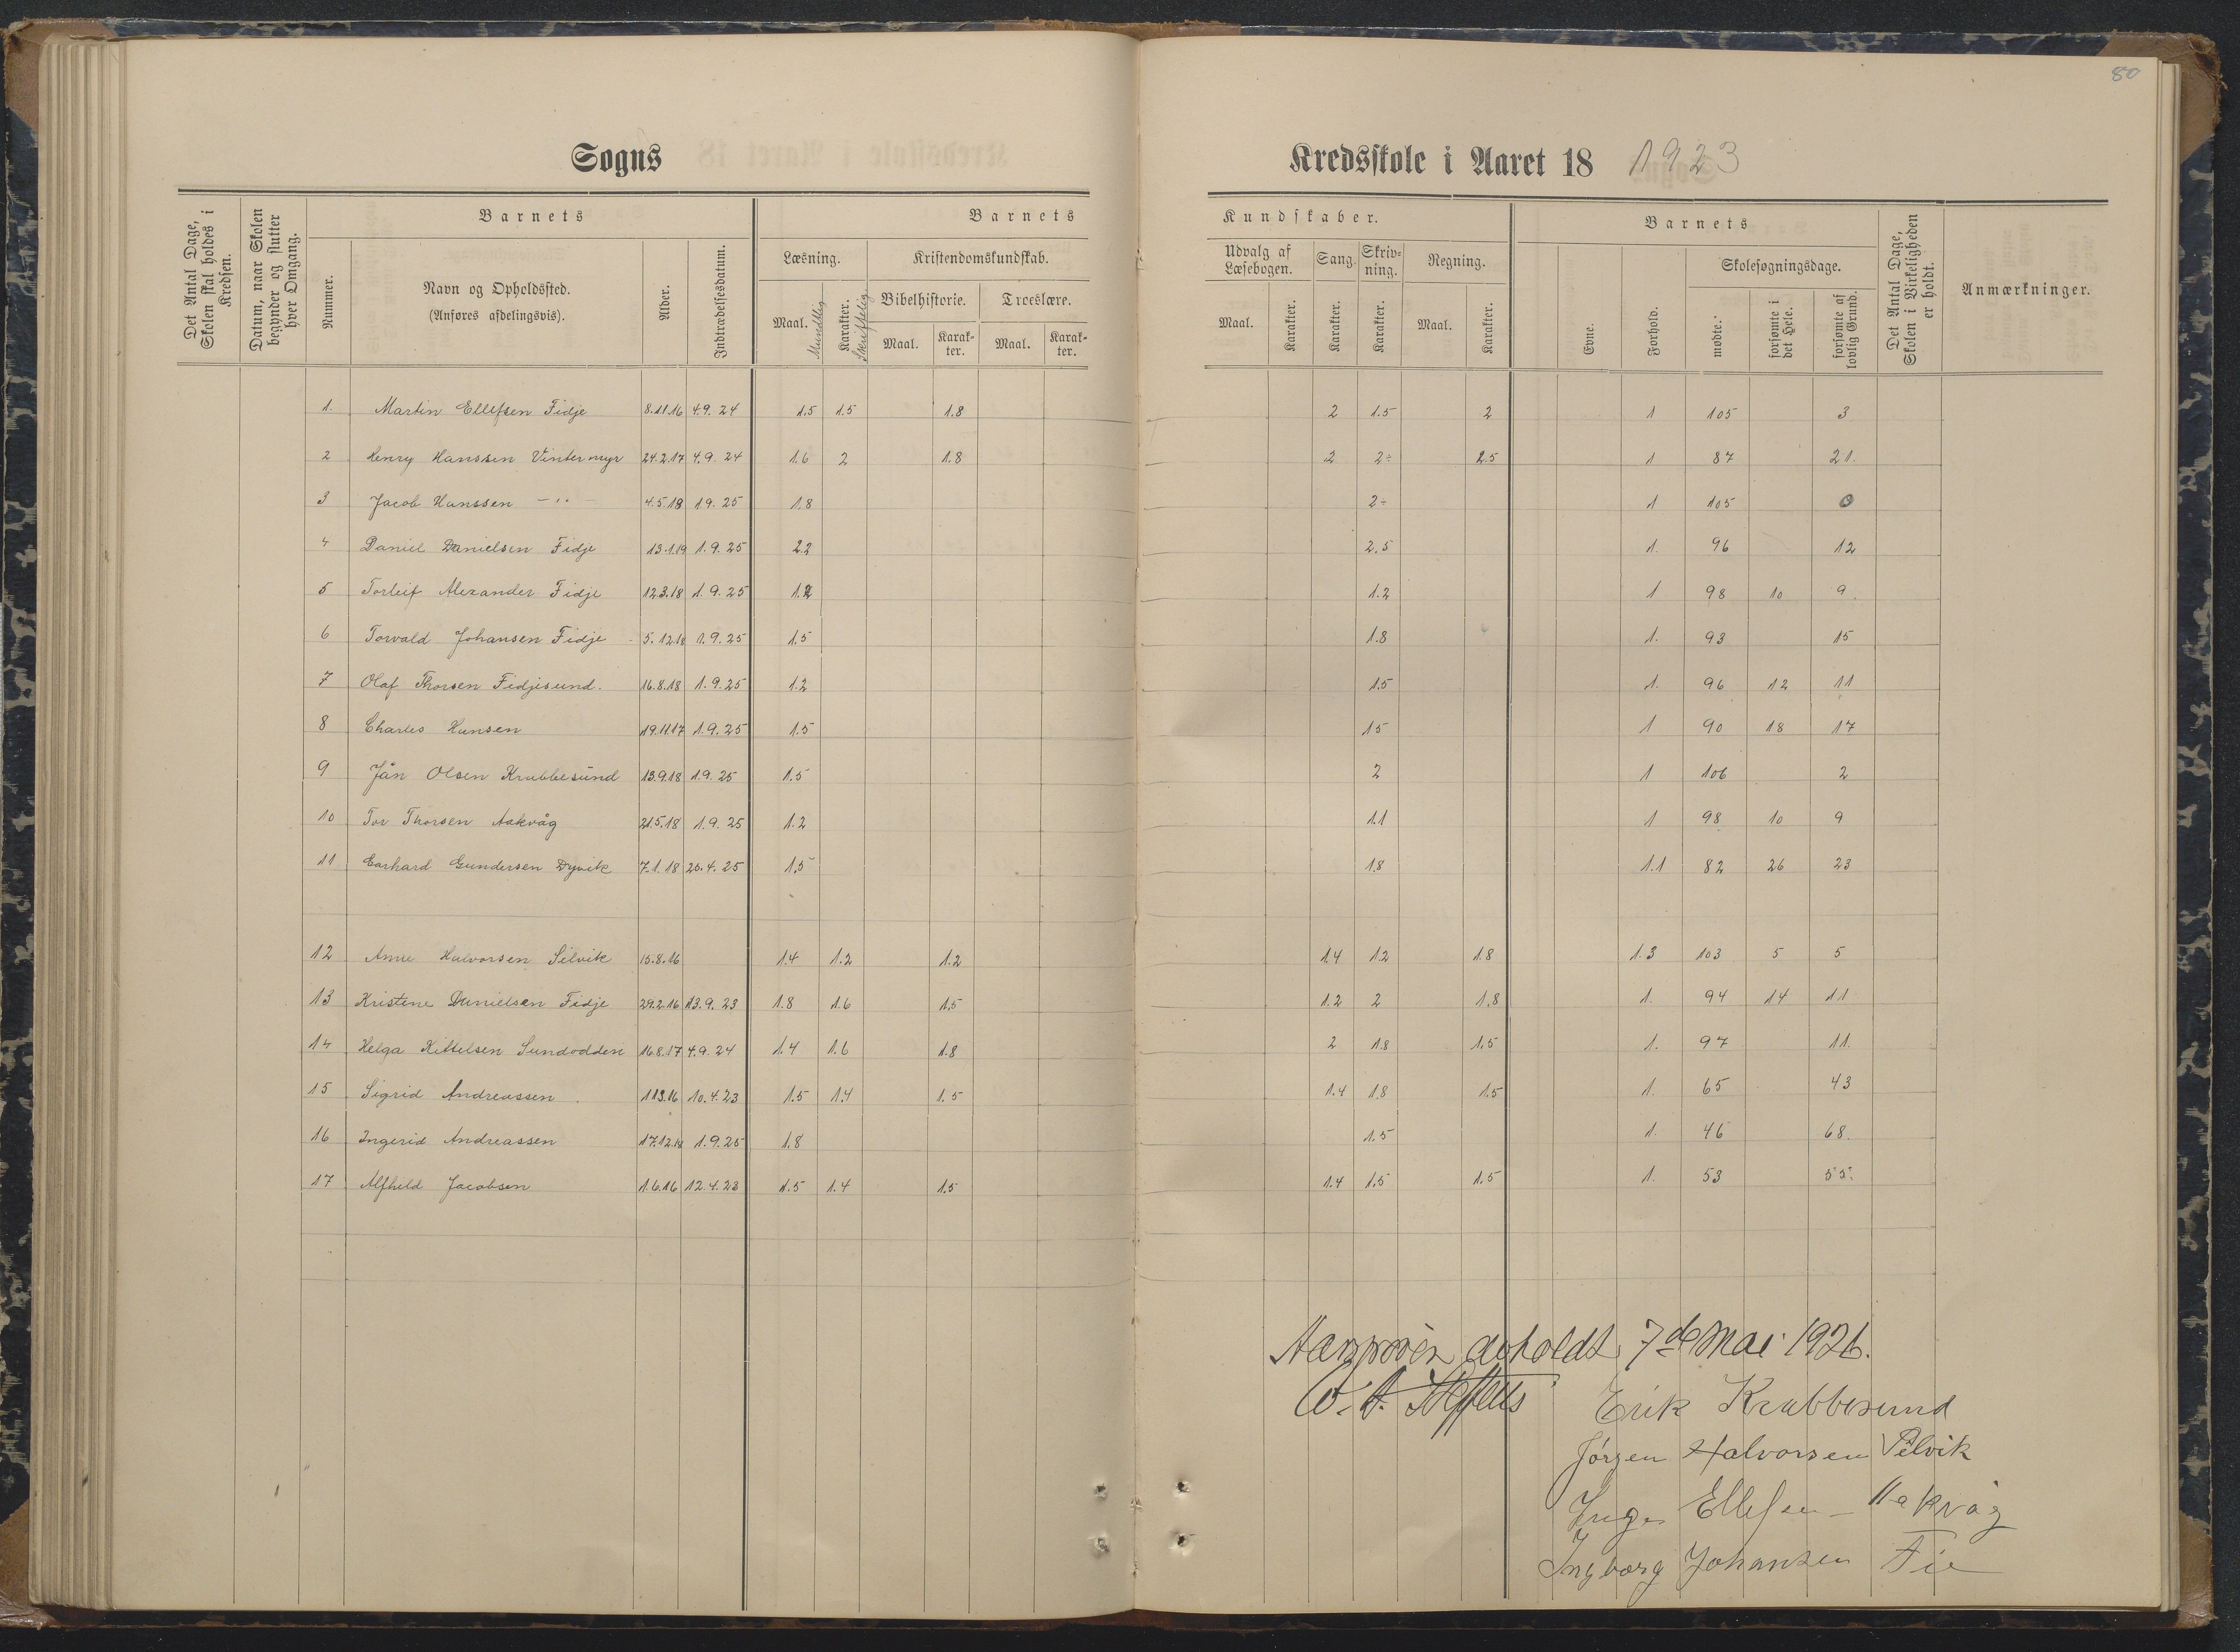 80
Sogns
Kredsskole i Aaret 18 1923
Det Antal Dage, Skolen skal holdes i Kredsen.
Datum, naar Skolen begynder og slutter hver Omgang.
Barnets
Nummer.
Navn og Opholdssted.
(Anføres afdelingsvis).
Alder.
Indtrædelsesdatum.
Barnets
Læsning.
Maal.
Mundtlig
Karakter.
Skriftlig
Kristendomskundskab.
Bibelhistorie.
Maal.
Karakter.
Troeslære.
Maal.
Karakter.
Kundskaber.
Udvalg af Læsebogen.
Maal.
Karakter.
Sang.
Karakter.
Skrivning.
Karakter.
Regning.
Maal.
Karakter.
Barnets
Evne.
Forhold.
Skolesøgningsdage.
mødte.
forsømte i det Hele.
forsømte af lovlig Grund.
Det Antal Dage, Skolen i Virkeligheden er holdt.
Anmærkninger.
1. Martin Ellefsen Fidje 8.11.16 4.9.24 1.5 1.5 1.8 2 1.5 2 1 105 3
2 Henry Hanssen Vintermyr 24.2.17 4.9.24 1.6 2 1.8 2 2÷ 2.5 1 87 21.
3 Jacob Hanssen – " – 4.5.18 1.9.25 1.8 2÷ 1 105 0
4 Daniel Danielsen Fidje 13.1.19 1.9.25 2.2 2.5 1. 96 12
5 Torleif Alexander Fidje 12.3.18 1.9.25 1.2 1.2 1 98 10 9.
6 Torvald Johansen Fidje 5.12.18 1.9.25 1.5 1.8 1. 93 15
7 Olaf Thorsen Fidjesund. 16.8.18 1.9.25 1.2 1.5 1. 96 12 11
8 Charles Hansen 19.11.17 1.9.25 1.5 15 1 90 18 17
9 Jån Olsen Krabbesund 13.9.18 1.9.25 1.5 2 1 106 2
10 Tor Thorsen Aakvåg 21.5.18 1.9.25 1.2 1.1 1 98 10 9
11 Gerhard Gundersen Dyvik 7.1.18 20.4.25 1.5 1.8 1.1 82 26 23
12 Anne Halvorsen Silvik 15.8.16 1.4 1.2 1.2 1.4 1.2 1.8 1.3 103 5 5
13 Kristene Danielsen Fidje 29.2.16 13.9.23 1.8 1.6 1.5 1.2 2 1.8 1. 94 14 11
14 Helga Kittelsen Sundodden 16.8.17 4.9.24 1.4 1.6 1.8 2 1.8 1.5 1. 97 11.
15 Sigrid Andreassen 11.3.16 10.4.23 1.5 1.4 1.5 1.4 1.8 1.5 1. 65 43
16 Ingerid Andreassen 17.12.18 1.9.25 1.8 1.5 1. 46 68.
17 Alfhild Jacobsen 1.6.16 12.4.23 1.5 1.4 1.5 1.4 1.5 1.5 1. 53 55.
avholdt 7de Mai 1926.
Erik Krabbesund
Jørgen Halvorsen
Inga Ellefsen – Aakvåg
Ingborg Johansen Fie